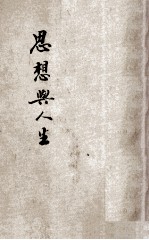 思想與人生